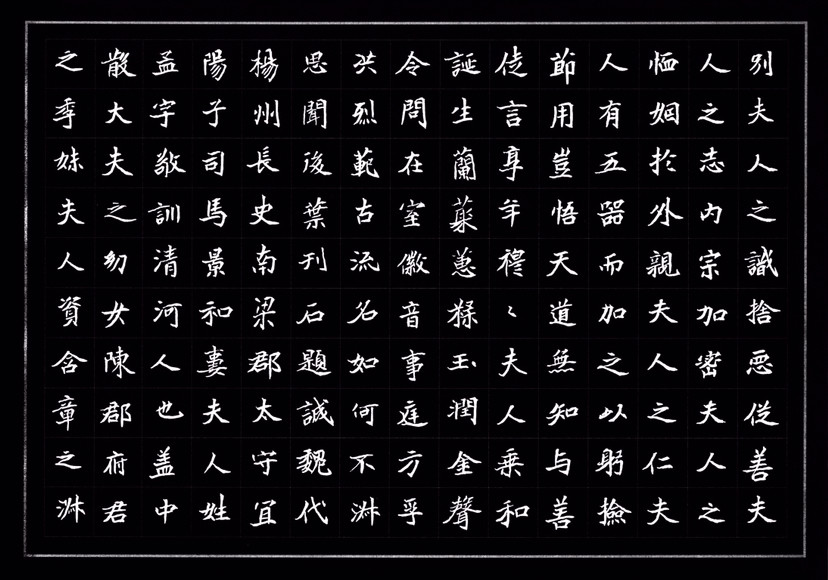 別夫人之識捨惡從善夫
人之志内宗加密夫人之
恤姻於外親夫人之仁夫
人有五器而加之以躬撿
節用豈悟天道無知与善
徒言享年穆〻夫人乗和
誕生蘭蕤蕙糅玉潤金聲
令問在室徽音事庭方乎
洪烈範古流名如何不淋
思聞後葉刊石題誠魏代
楊州長史南梁郡太守宜
陽子司馬景和妻夫人姓
孟字敬訓清河人也盖中
散大夫之幼女陳郡府君
之季妹夫人資含章之淋